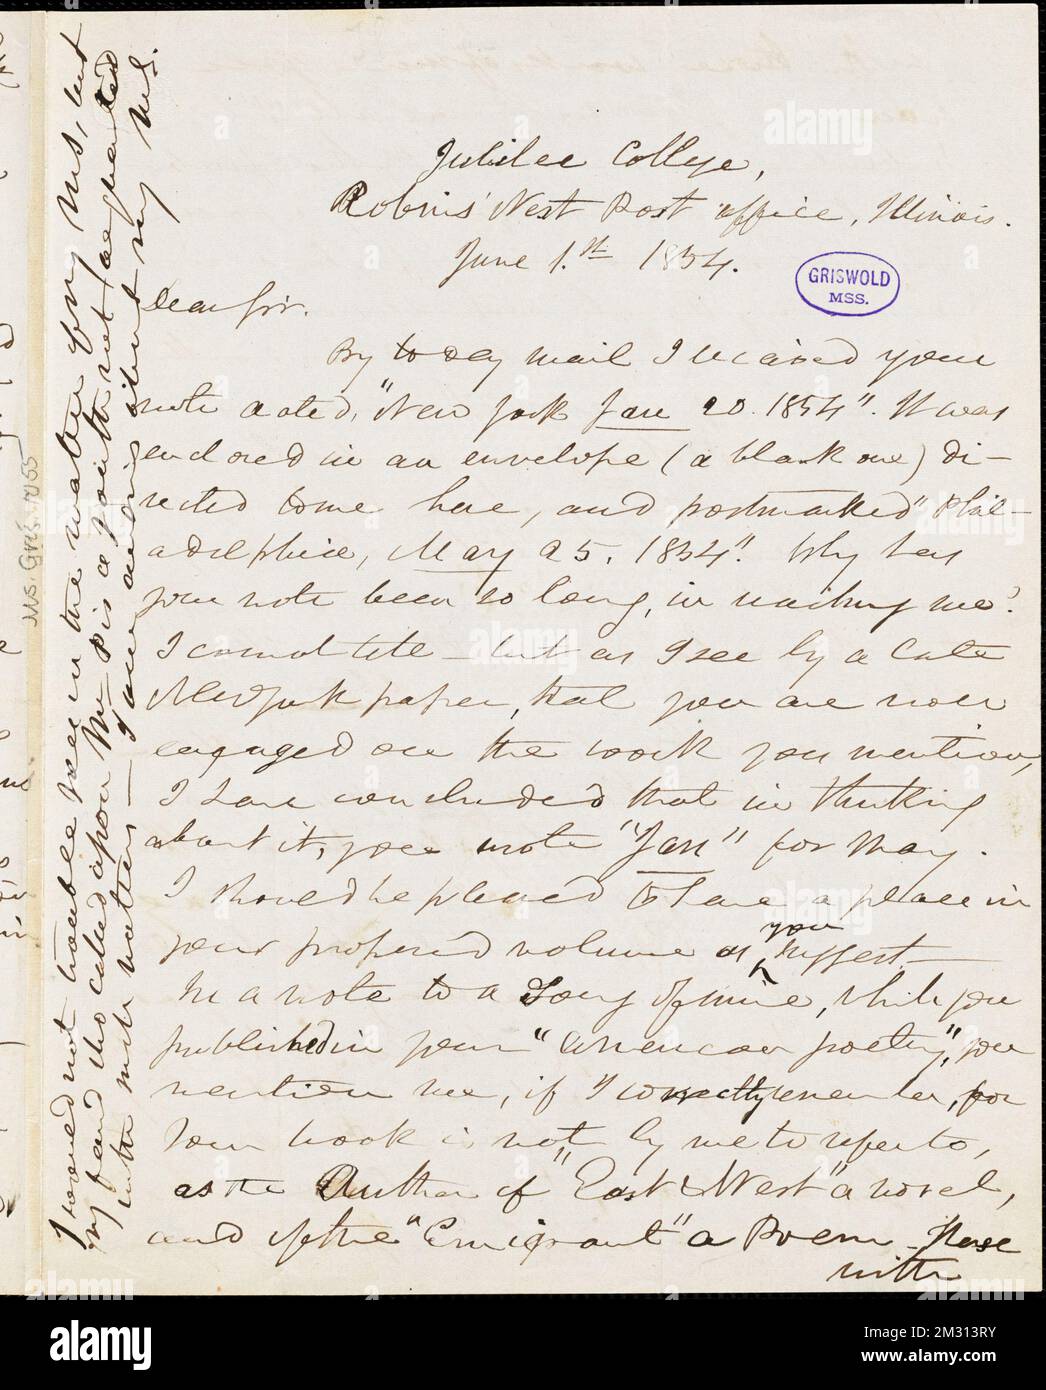 Jubilee College,
Robins' Nest Post office, Illinois.
June 1.st 1854.
GRISWOLD
MSS.
Dear Sir.
By to day mail I received your
note dated, "New York Jan 20. 1854". It was
enclosed in an envelope (a blank one) di-
rected to me here, and postmarked "Phil-
adelphia, May 25, 1854." Why has
your note been so long, in reaching me?
I cannot tell — but as I see by a late
New York paper, that you are now
engaged on the work you mention,
I have concluded that in thinking
about it, you wrote "Jan" for May.
I should be pleased to have a place in
your proposed volume as you suggest —
In a note to a Song of mine, which you
published in your "American poetry", you
mention me, if I correctly remember, for
your book is not by me to refer to,
as the Author of "East & West" a novel,
and of the "Emigrant" a Poem — These
with
I would not trouble you in the matter of my Ms, but
my friend who called upon Mr P is a youth not acquainted
with such matters — I am anxious about my Ms.
Ms. Gris. 1055
alamy
Image ID: 2M313RY
www.alamy.com